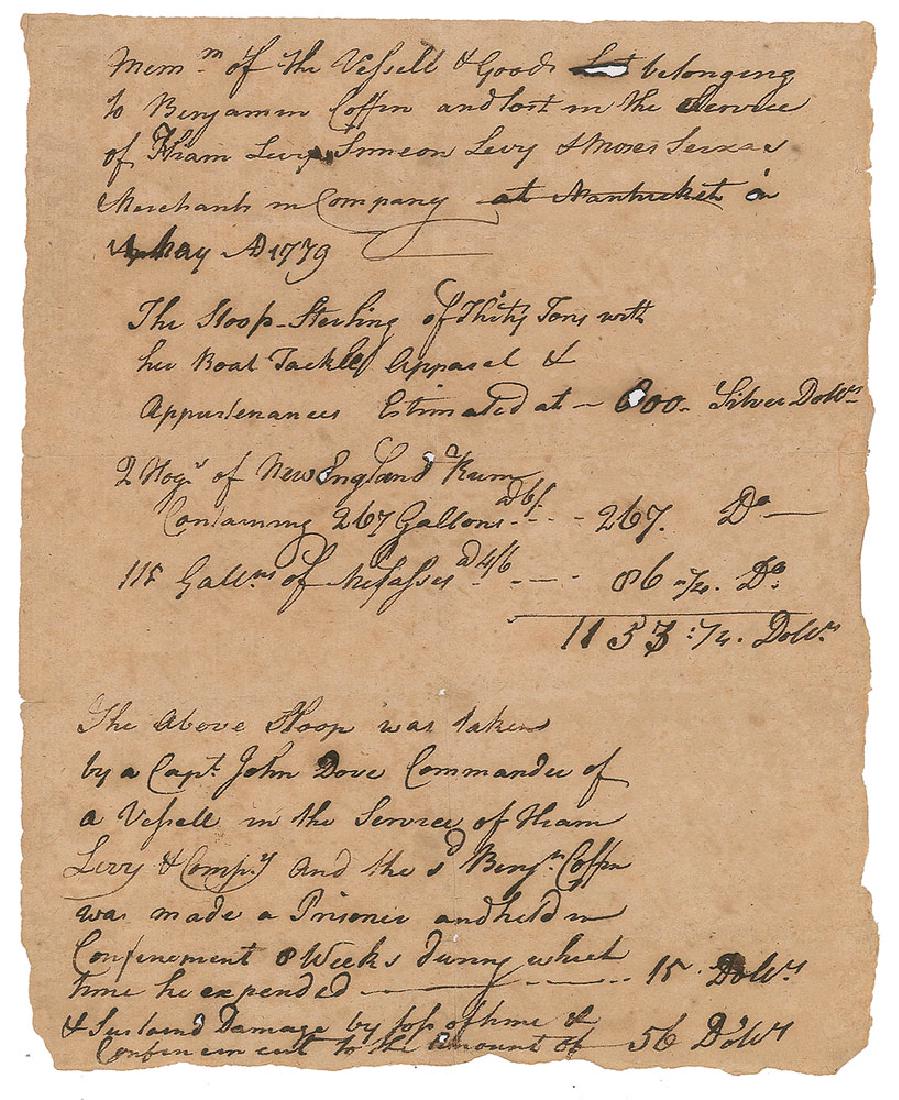 Mem.m of the Vessell & Goods Lost belonging
to Benjamin Coffin and lost in the Service
of Hiam Levy, Simeon Levy & Moses Seixas
Merchants in Company at Nantucket in
May AD 1779
The Sloop Sterling of Thirty Tons with
her Boat Tackle Apparel &
Appurtenances Estimated at — 800. Silver Dollrs
2 Hogs of New England Rum
Containing 267 Gallons @ 6/. - - - 267. Do —
115 Gallns of Melasses @ 4/6 - - - 86 - 1/4. Do
1153 : 1/4. Dollrs
The Above Sloop was taken
by a Capt. John Dove Commander of
a Vessell in the Service of Hiam
Levy & Comp.y and the sd Benjn. Coffin
was made a Prisoner and held in
Confinement 8 Weeks during which
time he expended — - - - 15. Dollrs
& Sustaind Damage by loss of time &
Confinement to the amount of — 56 Dollrs